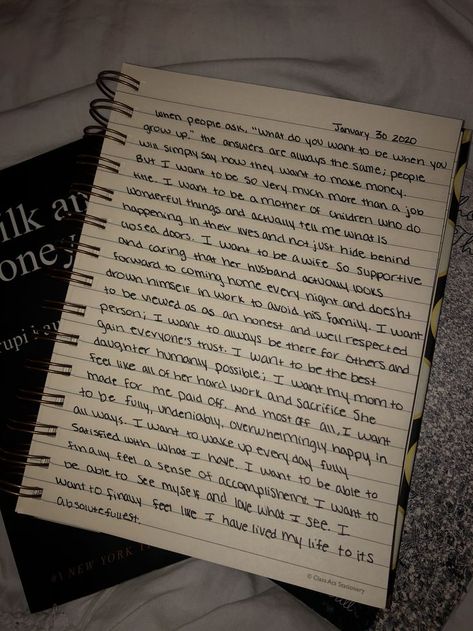 January 30 2020
When people ask, "What do you want to be when you
grow up." the answers are always the same; people
will simply say how they want to make money.
But I want to be so very much more than a job
title. I want to be a mother of children who do
wonderful things and actually tell me what is
happening in their lives and not just hide behind
closed doors. I want to be a wife so supportive
and caring that her husband actually looks
forward to coming home every night and doesnt
drown himself in work to avoid his family. I want
to be viewed as as an honest and well respected
person; I want to always be there for others and
gain everyone's trust. I want to be the best
daughter humanly possible; I want my mom to
feel like all of her hard work and sacrifice she
made for me paid off. And most off all, I want
to be fully, undeniably, overwhelmingly happy in
all ways. I want to wake up every day fully
satisfied with what I have. I want to be able to
finally feel a sense of accomplishment. I want to
be able to see myself and love what I see. I
want to finally feel like I have lived my life to its
absolutefullest.
© Class Act Stationery
ilk an
oney
rupi kau
#1 NEW YORK TI